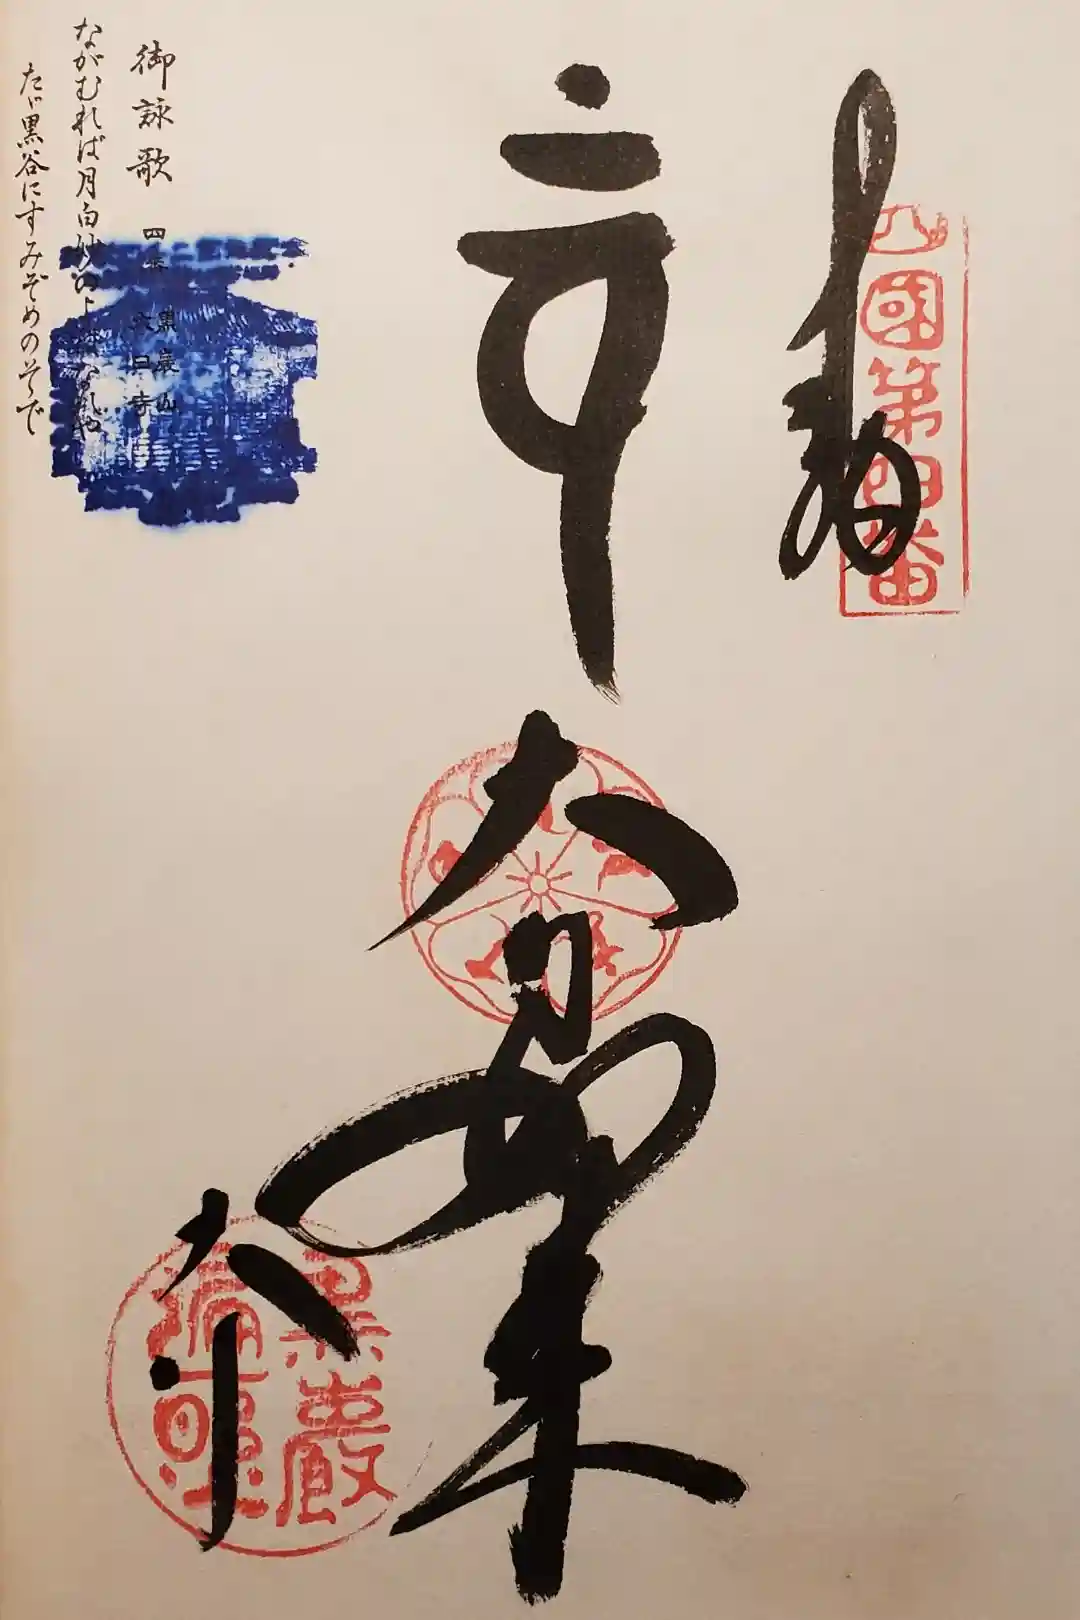 奉納
四國第四番
大日如来
大日寺
黒巖
遍照
御詠歌
四番
黒巌山
大日寺
ながむれば月白妙の夜半なれや
たゞ黒谷にすみぞめのそで